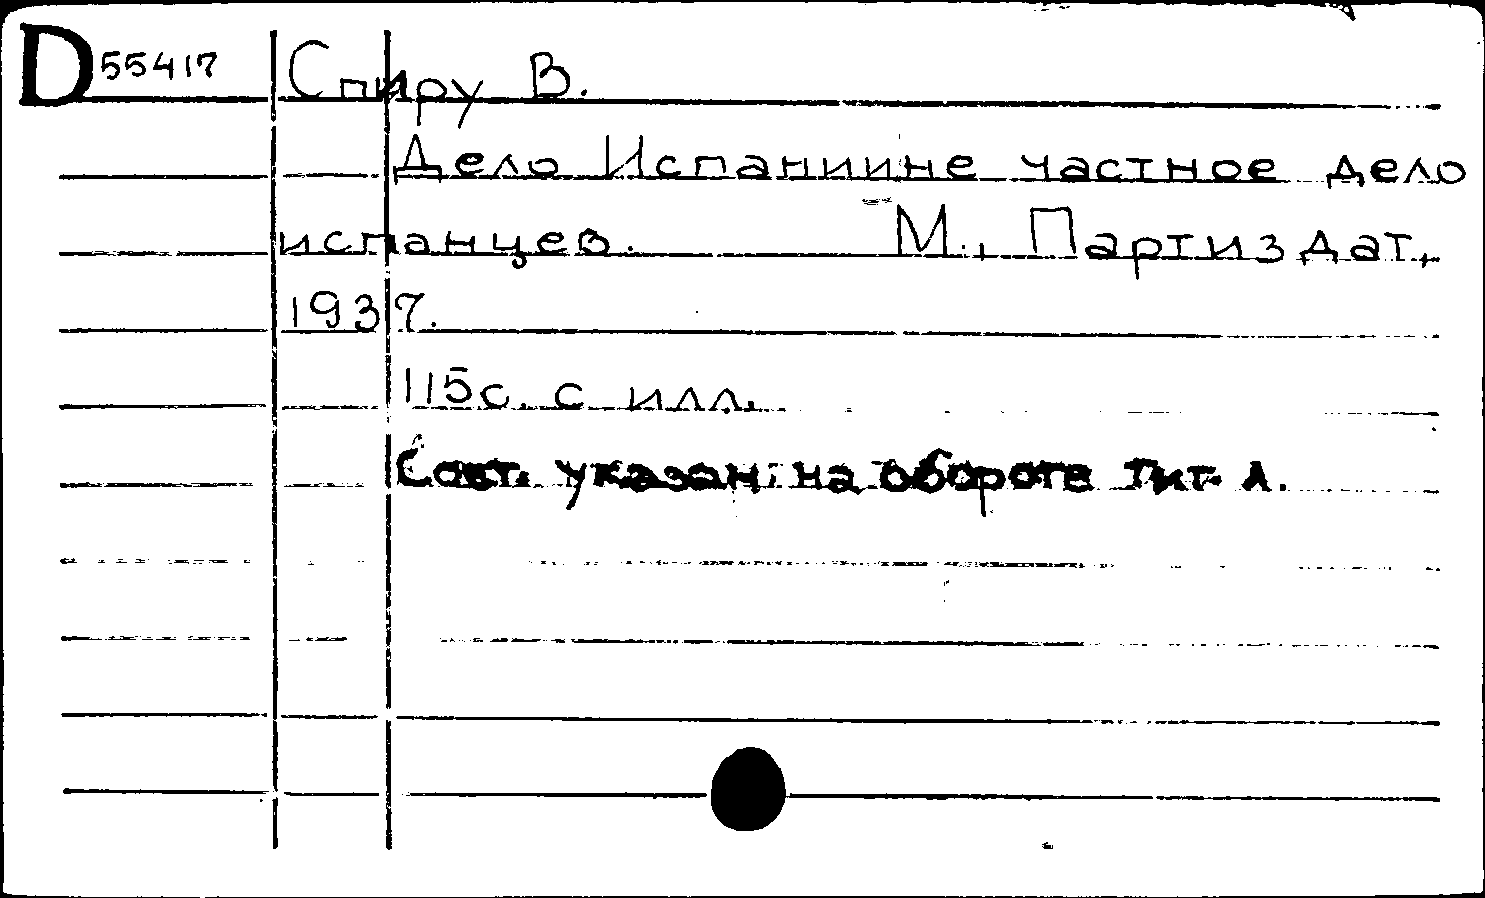 D 55417 Спиру В.
Дело Испании не частное дело
испанцев. М., Партиздат,
1937.
115с. с илл.
Сост. указан на обороте тит. л.